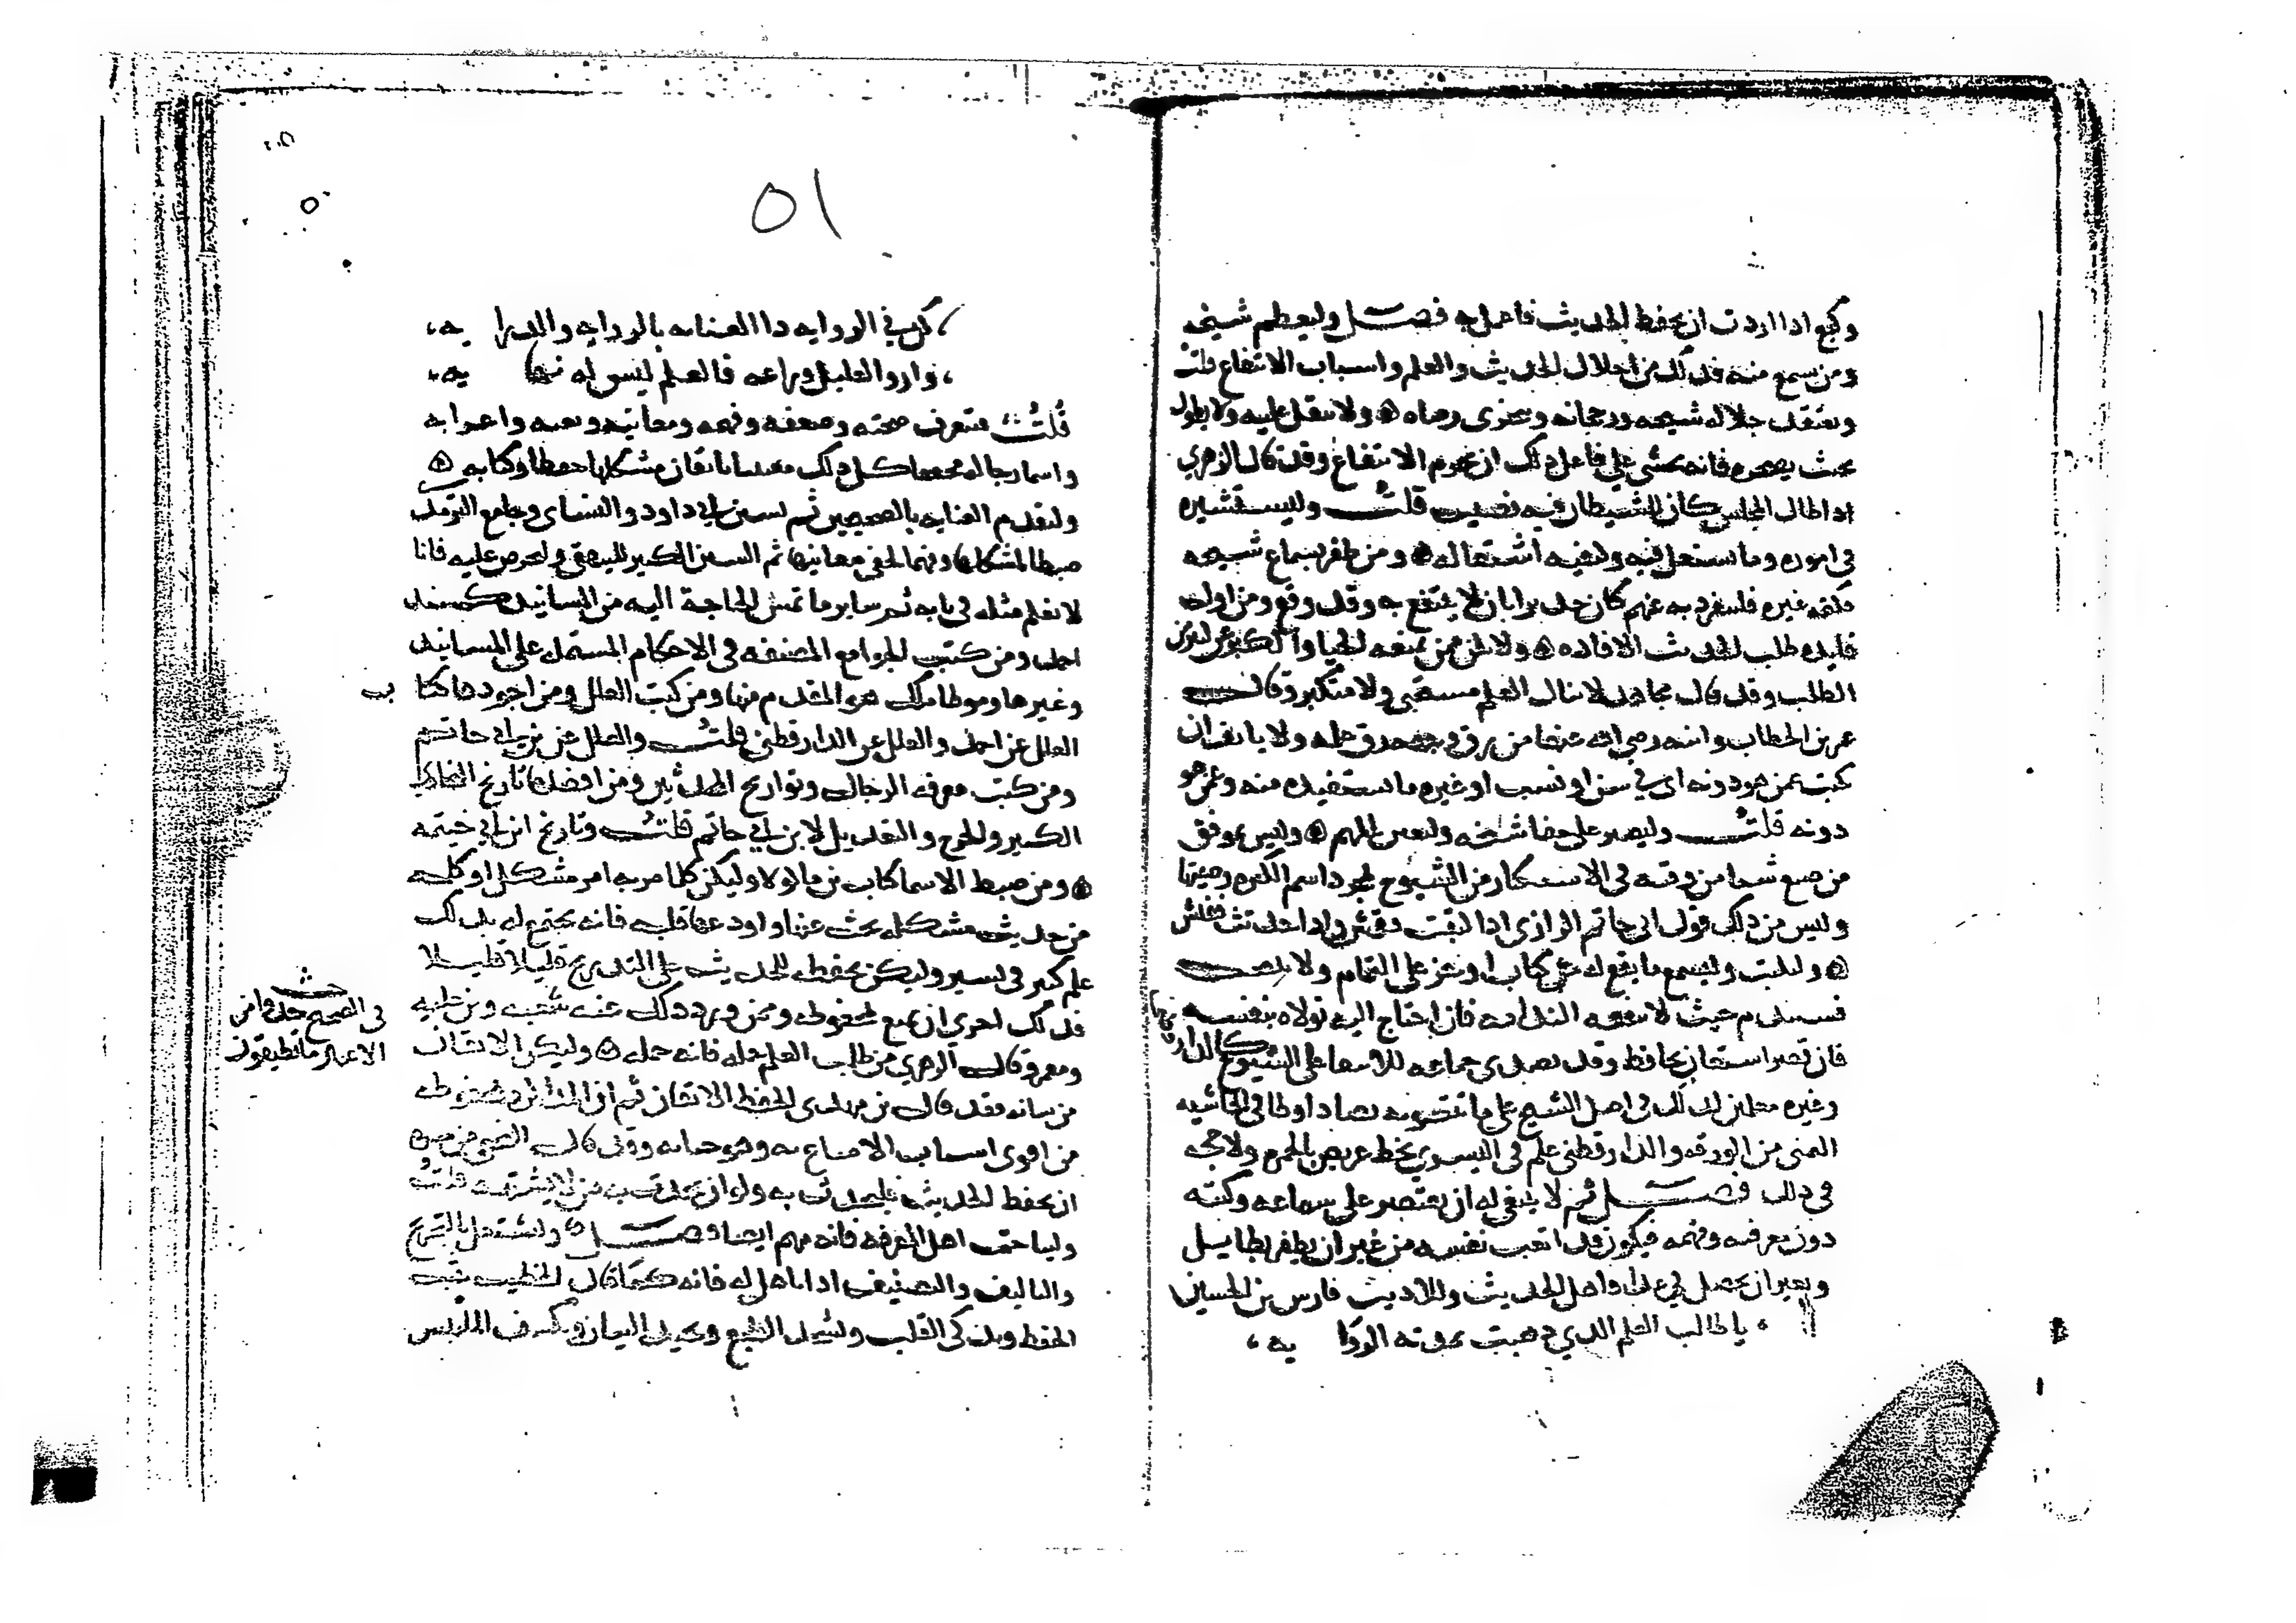 وكيع اذا اردت ان تحفظ الحديث فاعمل به فصل وليعظم شيخه
ومن سمع منه فذلك من اجلال الحديث والعلم واسباب الانتفاع قلت
ويعتقد جلاله شيخه ورجحانه ويتحرى رضاه ولا يثقل عليه ولا يطول
بحيث يضجره فانه يخشى على فاعل ذلك ان يحرم الانتفاع وقد قال الزهري
اذا طال المجلس كان للشيطان فيه نصيب قلت وليستشيره
في اموره وما يشتغل فيه وكيفيه اشتغاله ومن ظفر بسماع شيخ
فكتمه غيره فلينفرد به عنهم كان جديرا بان لا ينتفع به وقد وقع ومن اول
فايده طلب الحديث الافاده ولا يكن ممن يمنعه الحيا والكبر عن
الطلب وقد قال مجاهد لا ينال العلم مستحيى ولا متكبر وقال
عمر بن الخطاب وابنه رضي الله عنهما من رق وجهه رق علمه ولا يانف ان
يكتب عمن هو دونه اي في سن او نسب او غيره ما يستفيده منه وعمن هو
دونه قلت وليصبر على جفا شيخه وليعتن بالمهم وليس بموفق
من ضيع شيئا من وقته في الاستكثار من الشيوخ لمجرد اسم الكثره وصيتها
وليس من ذلك قول ابي حاتم الرازي اذا كتبت فقمش واذا حدثت ففتش
وليكتب وليسمع ما يقع له من كتاب او جزء على التمام ولا ينتخب
فسيندم حيث لا ينفعه الندامه فان احتاج اليه تولاه بنفسه
فان قصر استعان بحافظ وقد تصدى جماعه للانتقا على الشيوخ كالدار
وغيره معلمين لذلك في اصل الشيخ على ما ينتقونه بصاد او طا في الحاشيه
اليمنى من الورقه والدارقطني علم في اليسرى بخط عريض بالحمره ولا حجر
في ذلك فصل ثم لا ينبغي له ان يقتصر على سماعه وكتبه
دون معرفته وفهمه فيكون قد اتعب نفسه من غير ان يظفر بطايل
وبغير ان يحصل في عداد اهل الحديث وللاديب فارس بن الحسين
يا طالب العلم الذي ذهبت بمدته الروا يه
٥١
كن في الروايه ذا العنايه بالروايه والدرا يه
وارو القليل وراعه فالعلم ليس له نها يه
قلت فتعرف صحته وضعفه وفهمه ومعانيه ولغته واعرابه
واسما رجاله محققا كل ذلك معتنيا باتقان مشكلها حفظا وكتابه
وليقدم العنايه بالصحيحين ثم لسنن ابي داود والنساي وجامع الترمذي
ضبطا لمشكلها وفهما لخفي معانيها ثم السنن الكبير للبيهقي وليحرص عليه فانا
لا نعلم مثله في بابه ثم ساير ما تمس الحاجة اليه من المسانيد كمسند
احمد ومن كتب الجوامع المصنفه في الاحكام المشتمله على المسانيد
وغيرها وموطا مالك هو المقدم منها ومن كتب العلل ومن اجودها كتا ب
العلل عن احمد والعلل عن الدارقطني قلت والعلل عن بن ابي حاتم
ومن كتب معرفه الرجال وتواريخ المحدثين ومن افضلها تاريخ البخاري
الكبير والجرح والتعديل لابن ابي حاتم قلت وتاريخ ابن ابي خيثمه
ومن ضبط الاسما كتاب بن ماكولا وليكن كلما مر به امر مشكل او كلمه
من حديث مشكله بحث عنها واودعها قلبه فانه يجتمع له بذلك
علم كثير في يسير وليكن تحفظه للحديث على التدريج قليلا قليلا
فذلك احرى ان يمتع بمحفوظه وممن ورد ذلك عنه شعبه وبن عليه
ومعمر وقال الزهري من طلب العلم جمله فاته جمله وليكن الاتقان
من شانه فقد قال بن مهدي الحفظ الاتقان ثم ان المذاكره بمحفوظه
من اقوى اسباب الامتاع به وهو حياته وقد قال النخعي من سره
ان يحفظ الحديث فليحدث به ولو ان يحدث به من لا يشتهيه قلت
وليباحث اهل المعرفه فانه مهم ايضا فصل وليشتغل بالتخريج
والتاليف والتصنيف اذا تاهل له فانه كما قال الخطيب يثبت
الحفظ ويذكي القلب ويشحذ الطبع ويجيد البيان ويكشف الملتبس
حديث
في الصحيح خذوا من
الاعمال ما تطيقون